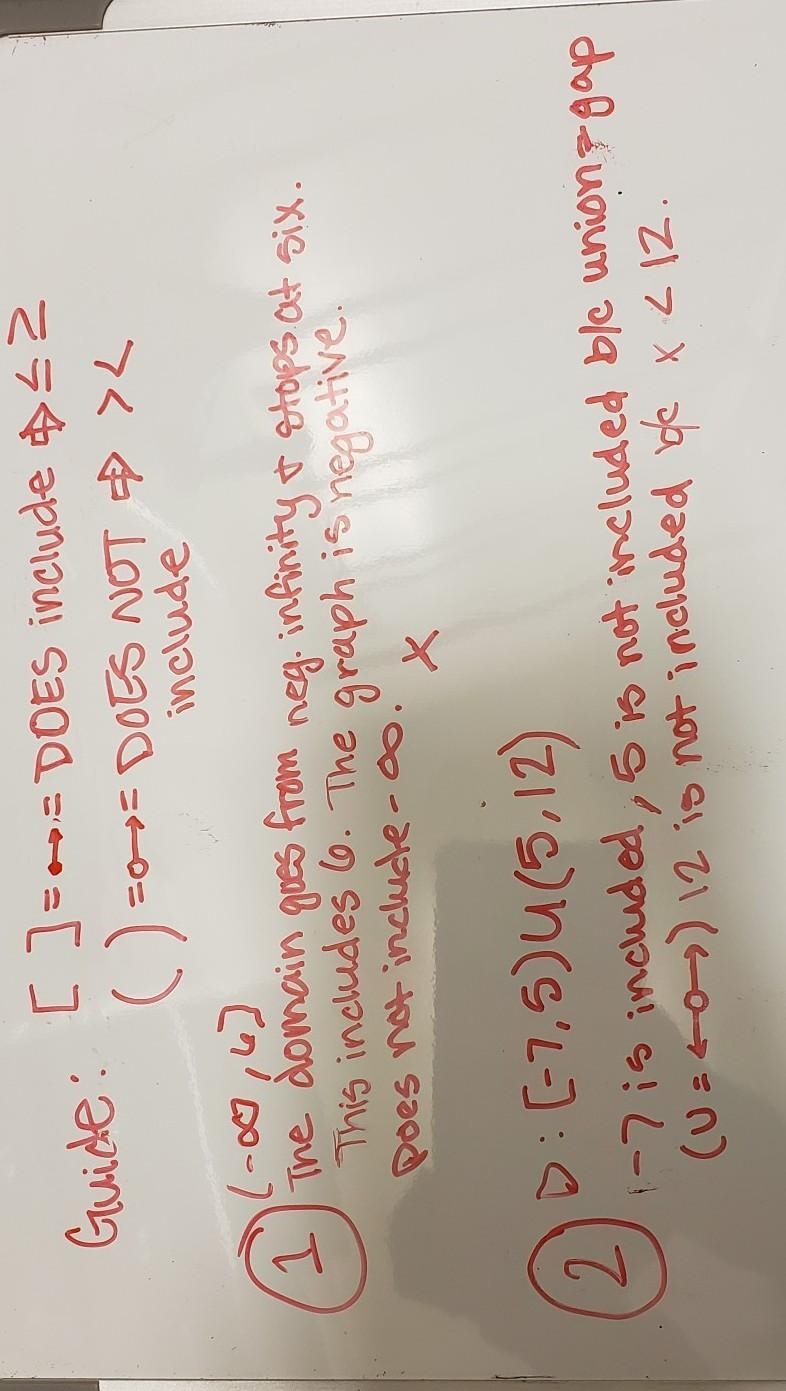 Guide: [ ] = •→ = DOES include ⇒ ≤ ≥
( ) = o→ = DOES NOT ⇒ > <
include
(-∞, 6]
1 The domain goes from neg. infinity & stops at six.
This includes 6. The graph is negative.
Does not include -∞. X
2 D: [-7,5)U(5,12)
-7 is included, 5 is not included b/c union = gap
(U = ←o→) 12 is not included b/c x < 12.